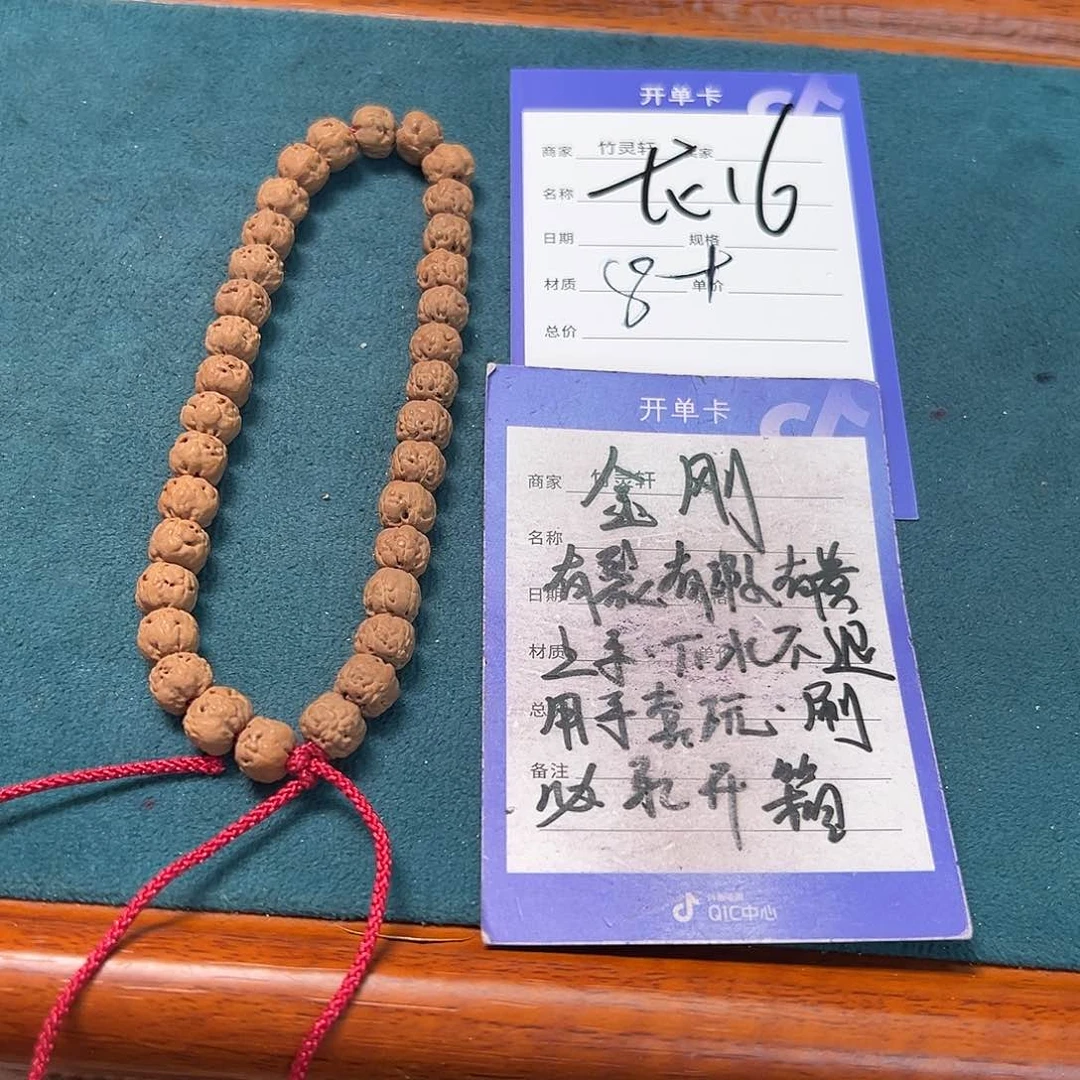 开单卡
商家 竹灵轩 家
名称 16
日期 规格
材质 8+ 单价
总价
开单卡
商家 竹灵轩
金刚
名称
日期 有裂 有 有
材质 上手·下水不退
总 用手套玩·刷
备注
开箱
QIC中心